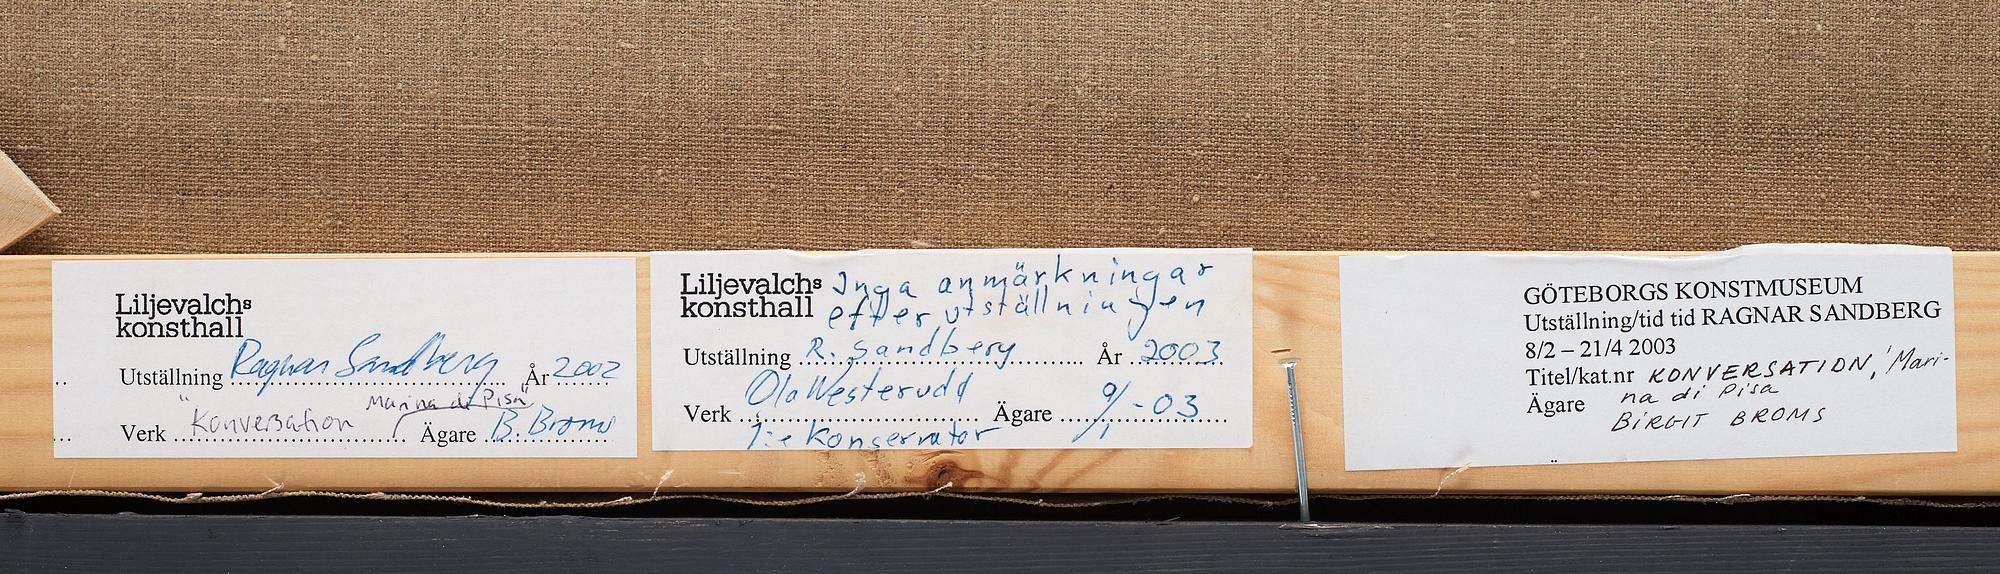 Liljevalchs
konsthall
Utställning Ragnar Sandberg År 2002
"Konversation Marina di Pisa"
Verk Ägare B. Broms
Liljevalchs Inga anmärkningar
konsthall efter utställningen
Utställning R. Sandberg År 2003
Ola Westerudd
Verk Ägare 9/1 -03
1:e Konservator
GÖTEBORGS KONSTMUSEUM
Utställning/tid tid RAGNAR SANDBERG
8/2 – 21/4 2003
Titel/kat.nr KONVERSATION, 'Mari-
Ägare na di Pisa
BIRGIT BROMS